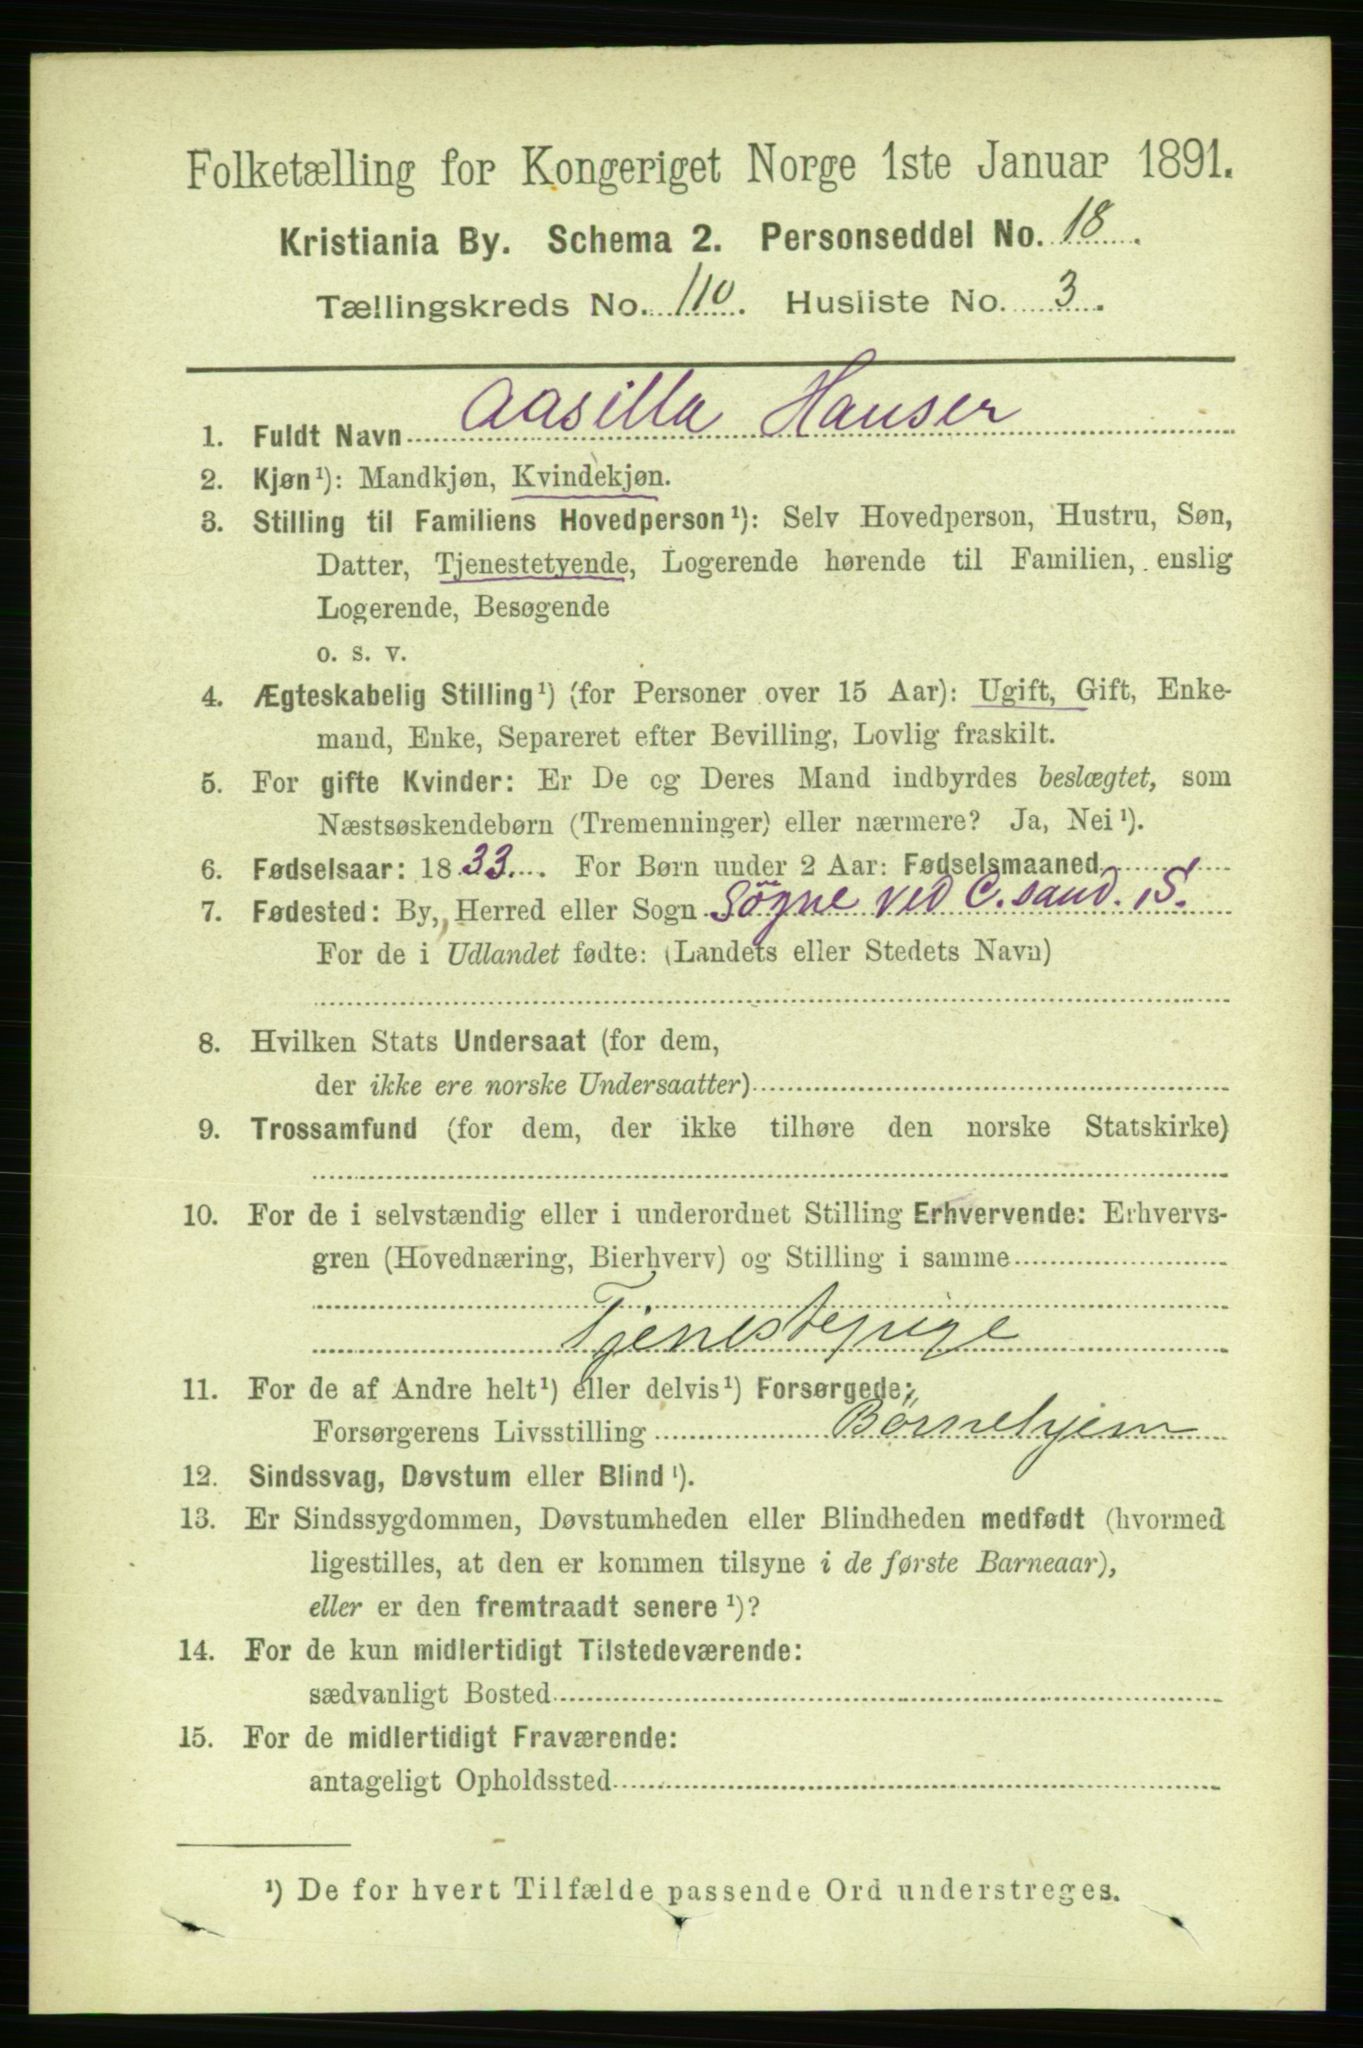 Folketælling for Kongeriget Norge 1ste Januar 1891.
Kristiania By. Schema 2. Personseddel No. 18.
Tællingskreds No. 110. Husliste No. 3.
1. Fuldt Navn Aasilla Hanser
2. Kjøn¹): Mandkjøn, Kvindekjøn.
3. Stilling til Familiens Hovedperson¹): Selv Hovedperson, Hustru, Søn,
Datter, Tjenestetyende, Logerende hørende til Familien, enslig
Logerende, Besøgende
o. s. v.
4. Ægteskabelig Stilling¹) (for Personer over 15 Aar): Ugift, Gift, Enke-
mand, Enke, Separeret efter Bevilling, Lovlig fraskilt.
5. For gifte Kvinder: Er De og Deres Mand indbyrdes beslægtet, som
Næstsøskendebørn (Tremenninger) eller nærmere? Ja, Nei¹).
6. Fødselsaar: 1833. For Børn under 2 Aar: Fødselsmaaned
7. Fødested: By, Herred eller Sogn Sögne ved C.sand. S.
For de i Udlandet fødte: (Landets eller Stedets Navn)
8. Hvilken Stats Undersaat (for dem,
der ikke ere norske Undersaatter)
9. Trossamfund (for dem, der ikke tilhøre den norske Statskirke)
10. For de i selvstændig eller i underordnet Stilling Erhvervende: Erhvervs-
gren (Hovednæring, Bierhverv) og Stilling i samme
Tjenestepige
11. For de af Andre helt¹) eller delvis¹) Forsørgede:
Forsørgerens Livsstilling Børnehjem
12. Sindssvag, Døvstum eller Blind¹).
13. Er Sindssygdommen, Døvstumheden eller Blindheden medfødt (hvormed
ligestilles, at den er kommen tilsyne i de første Barneaar),
eller er den fremtraadt senere¹)?
14. For de kun midlertidigt Tilstedeværende:
sædvanligt Bosted
15. For de midlertidigt Fraværende:
antageligt Opholdssted
¹) De for hvert Tilfælde passende Ord understreges.